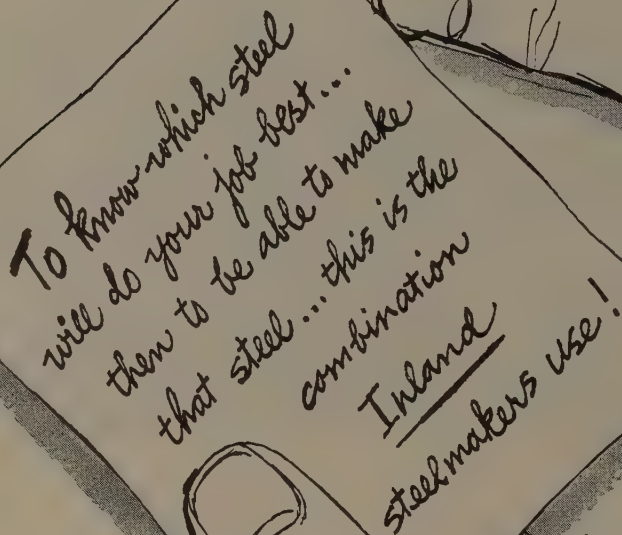 To know which steel
will do your job best...
then to be able to make
that steel... this is the
combination
Inland
steelmakers use!